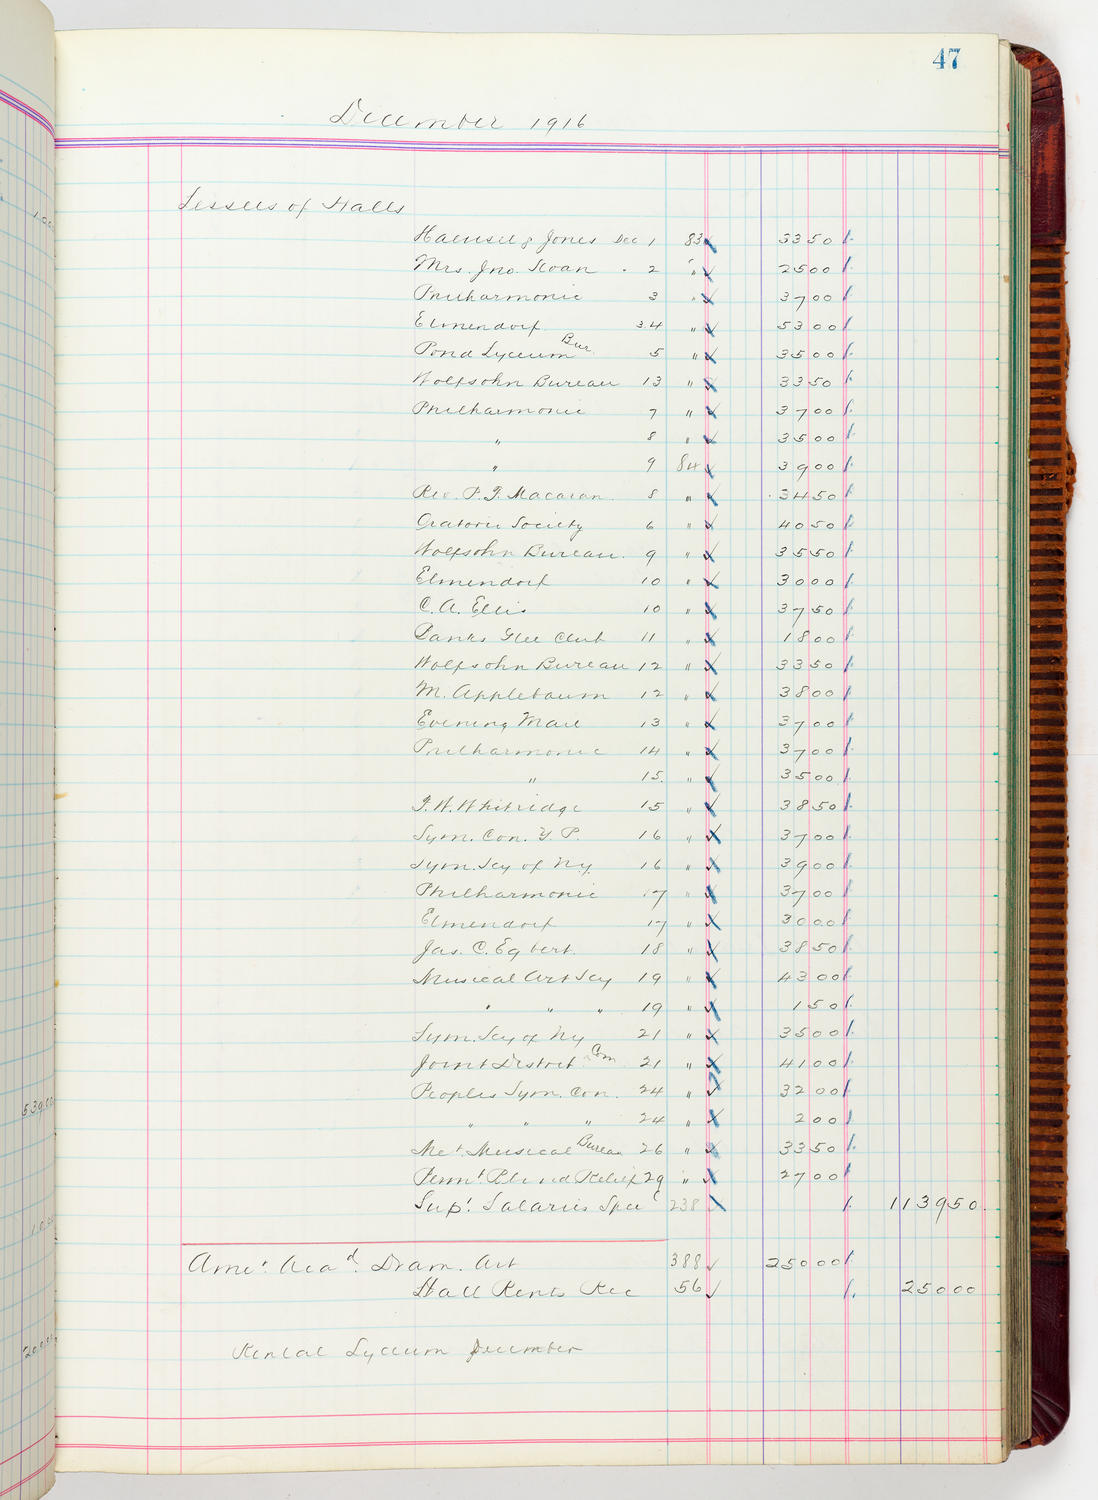 47
December 1916
Lessees of Halls
Haensel & Jones Dec 1 83 3350
Mrs. Jno. Sloan . 2 " 2500
Philharmonic 3 " 3700
Elmendorf 3.4 " 5300
Pond Lyceum Bur. 5 " 3500
Wolfsohn Bureau 13 " 3350
Philharmonic 7 " 3700
" 8 " 3500
" 9 84 3900
Rev. P. J. 8 " 3450
Oratorio Society 6 " 4050
Wolfsohn Bureau. 9 " 3550
Elmendorf 10 " 3000
C. A. Ellis 10 " 3750
Banks Glee Club 11 " 1800
Wolfsohn Bureau 12 " 3350
M. Applebaum 12 " 3800
Evening Mail 13 " 3700
Philharmonic 14 " 3700
" 15. " 3500
F. W. Whitridge 15 " 3850
Sym. Con. Y. P. 16 " 3700
Sym. Scy of N.Y. 16 " 3900
Philharmonic 17 " 3700
Elmendorf 17 " 3000
Jas. C. Egbert. 18 " 3850
Musical Art Scy 19 " 4300
" " " 19 " 150
Sym. Scy of NY 21 " 3500
Joint Distrbt Com 21 " 4100
Peoples Sym. Con. 24 " 3200
" " " 24 " 200
Met. Musical Bureau 26 " 3350
Permt. Blind Relief 29 " 2700
Supt. Salaries Spec 238 113950.
Amer. Acad. Dram. Art 388 25000
Hall Rents Rec 56 25000
Rental Lyceum December
1.00
539.00
1.0
200.00